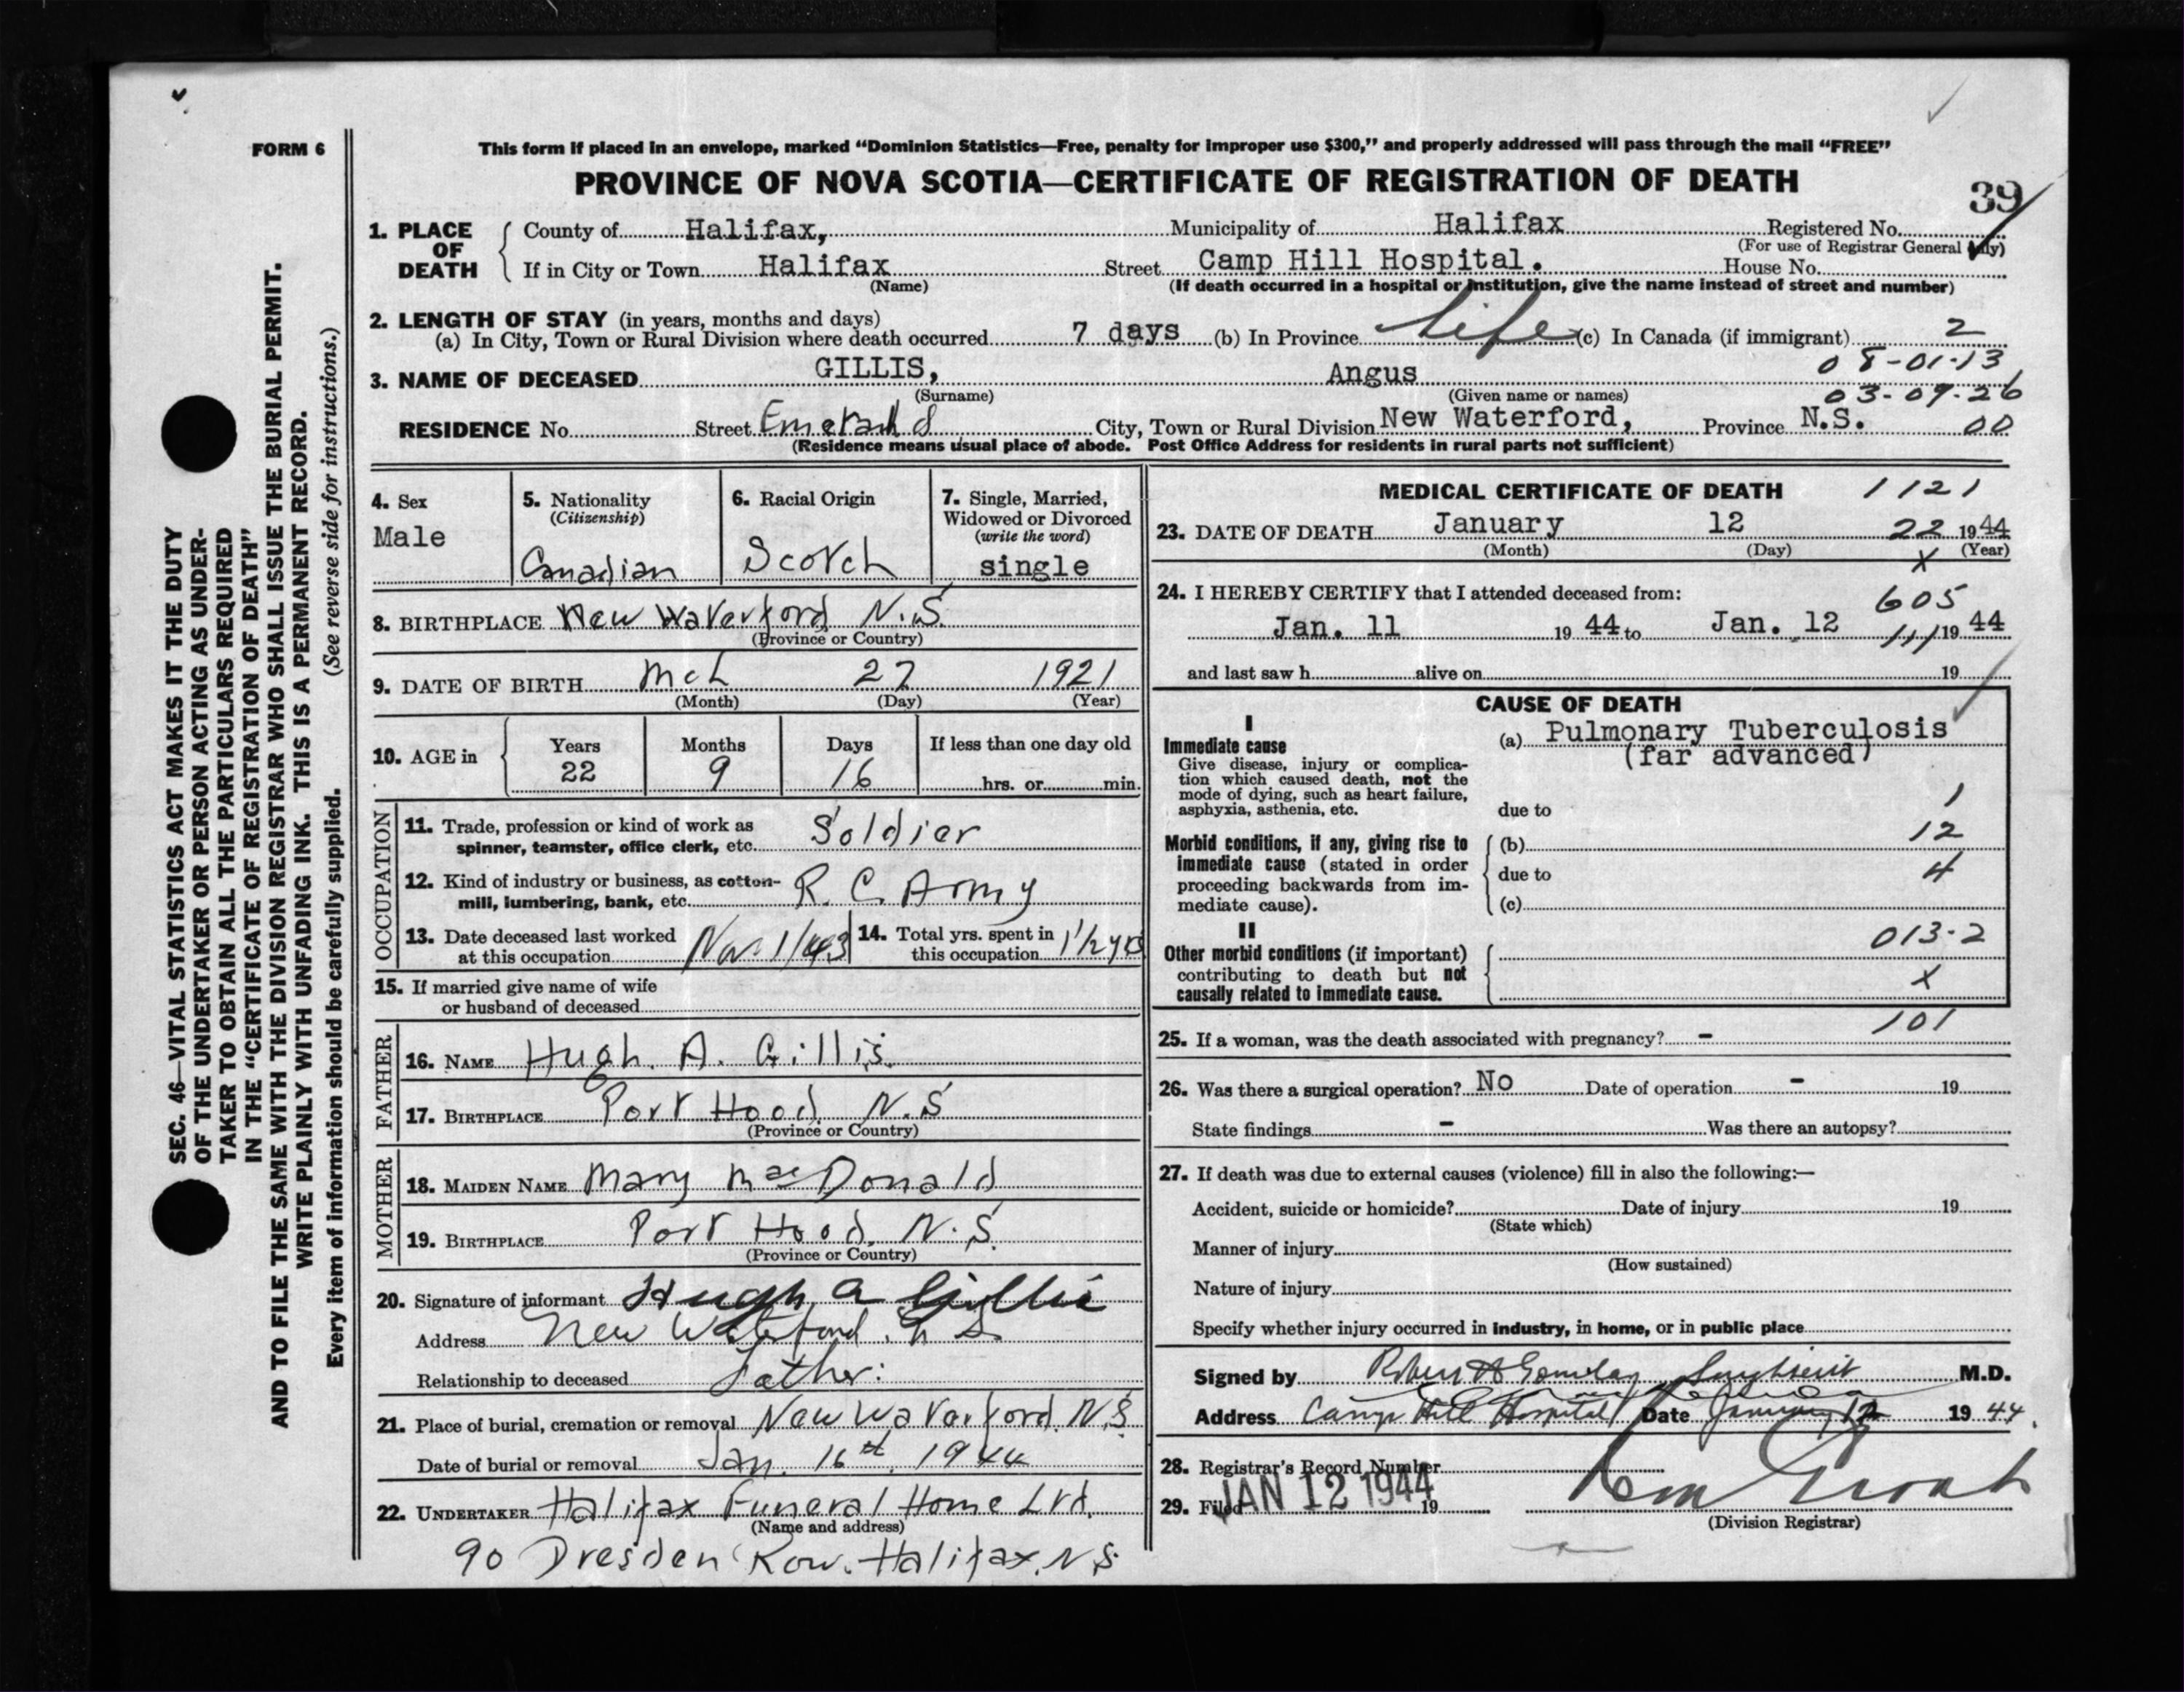 FORM 6
This form if placed in an envelope, marked “Dominion Statistics—Free, penalty for improper use $300,” and properly addressed will pass through the mail “FREE”
PROVINCE OF NOVA SCOTIA—CERTIFICATE OF REGISTRATION OF DEATH
39
1. PLACE OF DEATH County of Halifax, Municipality of Halifax Registered No.
(For use of Registrar General only)
If in City or Town Halifax Street Camp Hill Hospital. House No.
(Name) (If death occurred in a hospital or institution, give the name instead of street and number)
2. LENGTH OF STAY (in years, months and days)
(a) In City, Town or Rural Division where death occurred 7 days (b) In Province Life (c) In Canada (if immigrant) 2
08-01-13
3. NAME OF DECEASED GILLIS, Angus
(Surname) (Given name or names) 03-09-26
RESIDENCE No. Street Emerald City, Town or Rural Division New Waterford, Province N.S. 00
(Residence means usual place of abode. Post Office Address for residents in rural parts not sufficient)
SEC. 46—VITAL STATISTICS ACT MAKES IT THE DUTY
OF THE UNDERTAKER OR PERSON ACTING AS UNDER-
TAKER TO OBTAIN ALL THE PARTICULARS REQUIRED
IN THE “CERTIFICATE OF REGISTRATION OF DEATH”
AND TO FILE THE SAME WITH THE DIVISION REGISTRAR WHO SHALL ISSUE THE BURIAL PERMIT.
WRITE PLAINLY WITH UNFADING INK. THIS IS A PERMANENT RECORD.
Every item of information should be carefully supplied. (See reverse side for instructions.)
4. Sex
Male
5. Nationality
(Citizenship)
Canadian
6. Racial Origin
Scotch
7. Single, Married,
Widowed or Divorced
(write the word)
single
8. BIRTHPLACE New Waterford N.S.
(Province or Country)
9. DATE OF BIRTH Mch 27 1921
(Month) (Day) (Year)
10. AGE in
Years Months Days If less than one day old
22 9 16 hrs. or min.
OCCUPATION
11. Trade, profession or kind of work as
spinner, teamster, office clerk, etc. Soldier
12. Kind of industry or business, as cotton-
mill, lumbering, bank, etc. R. C. Army
13. Date deceased last worked
at this occupation Nov 1/43
14. Total yrs. spent in
this occupation 1 1/2 yrs
15. If married give name of wife
or husband of deceased
FATHER
16. NAME Hugh. A. Gillis.
17. BIRTHPLACE Port Hood, N.S
(Province or Country)
MOTHER
18. MAIDEN NAME Mary MacDonald
19. BIRTHPLACE Port Hood, N.S.
(Province or Country)
20. Signature of informant Hugh A Gillis
Address New Waterford. N S
Relationship to deceased Father:
21. Place of burial, cremation or removal New Waterford. N.S.
Date of burial or removal Jan. 16th, 1944
22. UNDERTAKER Halifax Funeral Home Ltd.
(Name and address)
90 Dresden Row. Halifax, N.S.
MEDICAL CERTIFICATE OF DEATH 1121
23. DATE OF DEATH January 12 22 1944
(Month) (Day) X (Year)
24. I HEREBY CERTIFY that I attended deceased from: 605
Jan. 11 19 44 to Jan. 12 111 19 44
and last saw h alive on 19
CAUSE OF DEATH
I
Immediate cause
Give disease, injury or complica-
tion which caused death, not the
mode of dying, such as heart failure,
asphyxia, asthenia, etc.
(a) Pulmonary Tuberculosis
(far advanced)
due to 1
Morbid conditions, if any, giving rise to
immediate cause (stated in order
proceeding backwards from im-
mediate cause).
(b) 12
due to 4
(c)
II
Other morbid conditions (if important)
contributing to death but not
causally related to immediate cause.
013-2
X
101
25. If a woman, was the death associated with pregnancy? -
26. Was there a surgical operation? No Date of operation - 19
State findings - Was there an autopsy?
27. If death was due to external causes (violence) fill in also the following:—
Accident, suicide or homicide? Date of injury 19
(State which)
Manner of injury
(How sustained)
Nature of injury
Specify whether injury occurred in industry, in home, or in public place
Signed by M.D.
Address Camp Hill Hospital Date January 12 19 44.
28. Registrar's Record Number
29. Filed JAN 12 1944 19
(Division Registrar)